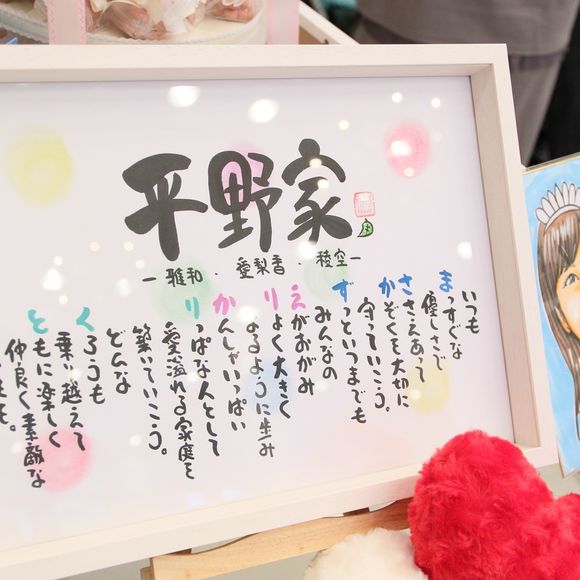 平野家
- 雅和・愛梨香・稜空 -
いつも
まっすぐな
優しさで
ささえあって
かぞくを大切に
守っていこう。
ずっといつまでも
みんなの
えがおがみ
りよく大きく
なるように歩み
かんしゃいっぱい
りっぱな人として
愛溢れる家庭を
築いていこう。
どんな
くろうも
乗り越えて
ともに楽しく
仲良く素敵な